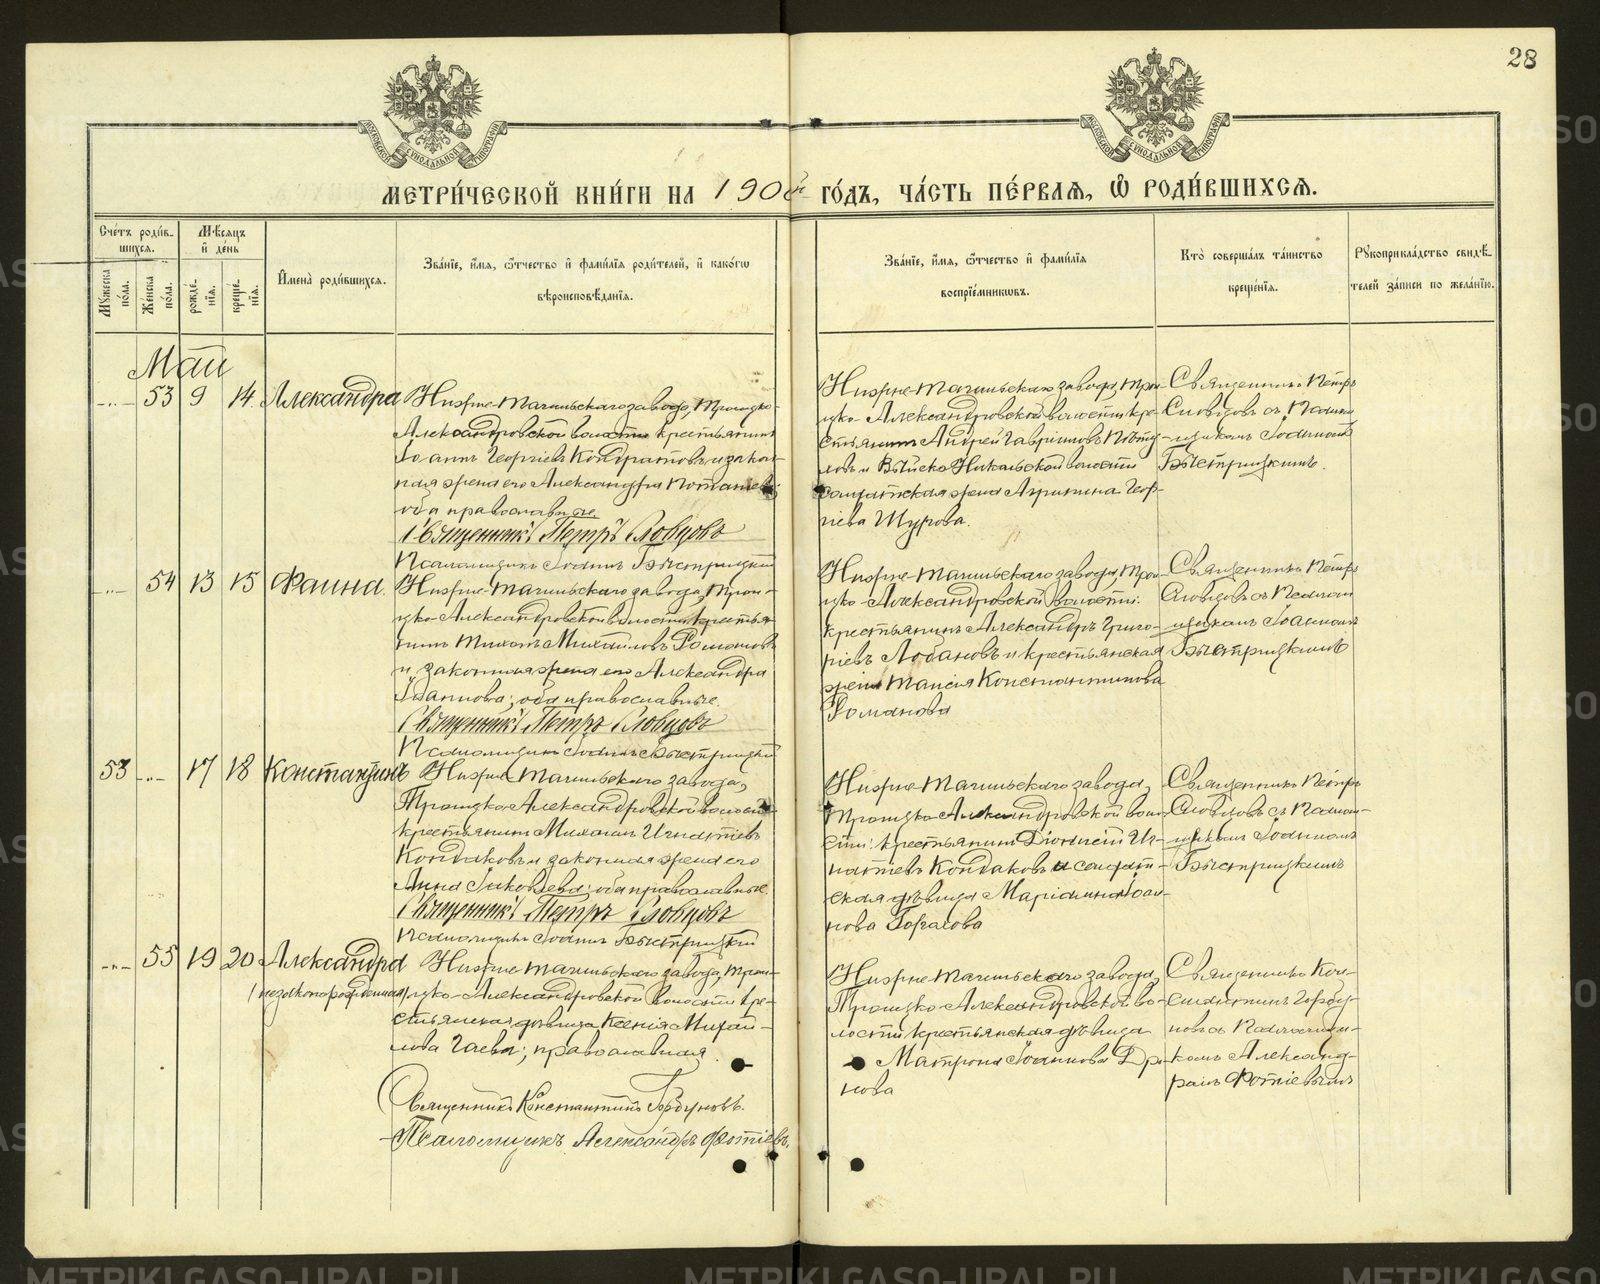 28
МОСКОВСКОЙ СѴНОДАЛЬНОЙ ТИПОГРАФІИ
МОСКОВСКОЙ СѴНОДАЛЬНОЙ ТИПОГРАФІИ
МЕТРИ́ЧЕСКОЙ КНИ́ГИ НА 190 ГО́ДЪ, ЧА́СТЬ ПЕ́РВАѦ, Ѡ҆ РОДИ́ВШИХСѦ.
Сче́тъ роди́в-
шихсѧ.
Мꙋ́жеска по́ла.
Же́нска по́ла.
Мѣ́сѧцъ
и҆ де́нь
рожде́-нїѧ.
креще́-нїѧ.
И҆мена̀ роди́вшихсѧ.
Зва́нїе, и҆́мѧ, ѻ҆́тчество и҆ фами́лїѧ роди́телей, и҆ како́гѡ
вѣроисповѣ́данїѧ.
Зва́нїе, и҆́мѧ, ѻ҆́тчество и҆ фами́лїѧ
воспрїе́мникѡвъ.
Кто̀ соверша́лъ та́инство
креще́нїѧ.
Рꙋкоприкла́дство свидѣ́-
телей за́писи по жела́нїю.
Май
-"- 53 9 14 Александра
Нижне-Тагильскаго завода, Троицко-
Александровской волости крестьянинъ
Іоаннъ Георгіевъ Кондратовъ и закон-
ная жена его Александра
оба православные.
Священникъ Петръ Словцовъ
Псаломщикъ Іоаннъ Быстрицкій
Нижне-Тагильскаго завода, Трои-
цко-Александровской волости кре-
стьянинъ Андрей Гавріиловъ
и Выйско-Никольской волости
солдатская жена Агрипина Геор-
гіева Шурова.
Священникъ Петръ
Словцовъ съ Псалом-
щикомъ Іоанномъ
Быстрицкимъ.
-"- 54 13 15 Фаина.
Нижне-Тагильскаго завода, Трои-
цко-Александровской волости крестья-
нинъ Тихонъ Михайловъ Романовъ
и законная жена его Александра
Іоаннова; оба православные.
Священникъ Петръ Словцовъ
Псаломщикъ Іоаннъ Быстрицкій
Нижне-Тагильскаго завода, Трои-
цко-Александровской волости:
крестьянинъ Александръ Григо-
ріевъ Лобановъ и крестьянская
жена Таисія Константинова
Романова
Священникъ Петръ
Словцовъ съ Псалом-
щикомъ Іоанномъ
Быстрицкимъ
53 -"- 17 18 Константинъ
Нижне-Тагильскаго завода,
Троицко-Александровской волости
крестьянинъ Михаилъ Игнатіевъ
Кондаковъ и законная жена его
Анна Іаковлева; оба православные.
Священникъ Петръ Словцовъ
Псаломщикъ Іоаннъ Быстрицкій
Нижне-Тагильскаго завода,
Троицко-Александровской воло-
сти: крестьянинъ Діонисій Иг-
натіевъ Кондаковъ и солдат-
ская дѣвица Маріамна Іоан-
нова
Священникъ Петръ
Словцовъ съ Псалом-
щикомъ Іоанномъ
Быстрицкимъ
-"- 55 19 20 Александра
(незаконорожденная)
Нижне-Тагильскаго завода, Трои-
цко-Александровской волости кре-
стьянская дѣвица Ксенія Михаи-
лова Гаева; православная.
Священникъ Константинъ Горбуновъ.
Псаломщикъ Александръ Фотіевъ.
Нижне-Тагильскаго завода,
Троицко-Александровской во-
лости крестьянская дѣвица
Матрона Іоаннова Дро-
нова
Священникъ Кон-
стантинъ Горбу-
новъ съ Псаломщи-
комъ Александ-
ромъ Фотіевымъ
METRIKI.GASO-URAL.RU